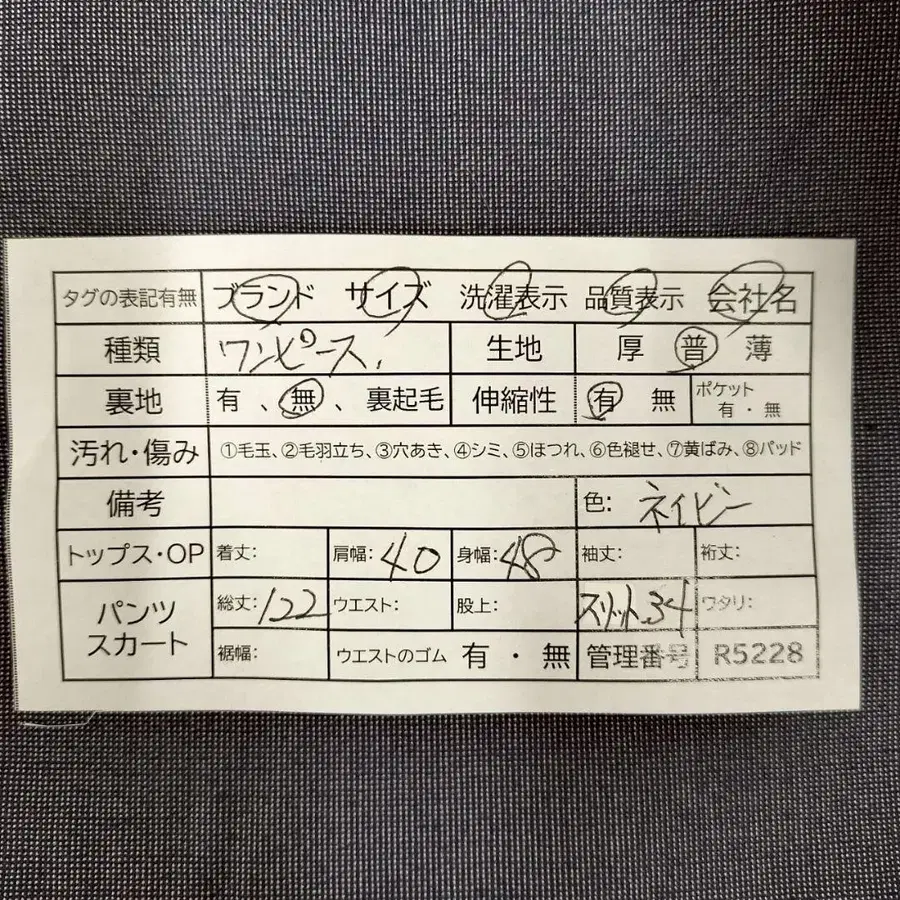 タグの表記有無 ブランド サイズ 洗濯表示 品質表示 会社名
種類 ワンピース. 生地 厚 普 薄
裏地 有 、無 、裏起毛 伸縮性 有 無 ポケット 有・無
汚れ・傷み ①毛玉、②毛羽立ち、③穴あき、④シミ、⑤ほつれ、⑥色褪せ、⑦黄ばみ、⑧パッド
備考 色: ネイビー
トップス・OP 着丈: 肩幅: 40 身幅: 48 袖丈: 裄丈:
パンツ スカート 総丈: 122 ウエスト: 股上: スリット.34 ワタリ:
裾幅: ウエストのゴム 有・無 管理番号 R5228